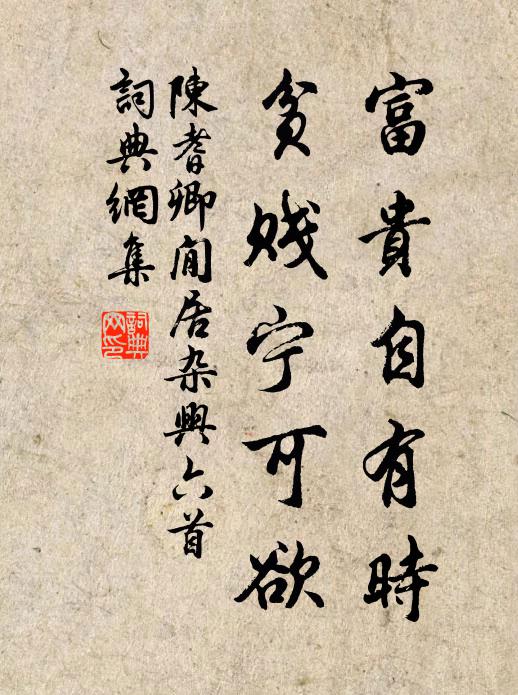 富貴自有時
貧賤宁可欲
陳耆卿閒居杂興六首
詞典網集
詞典
网印